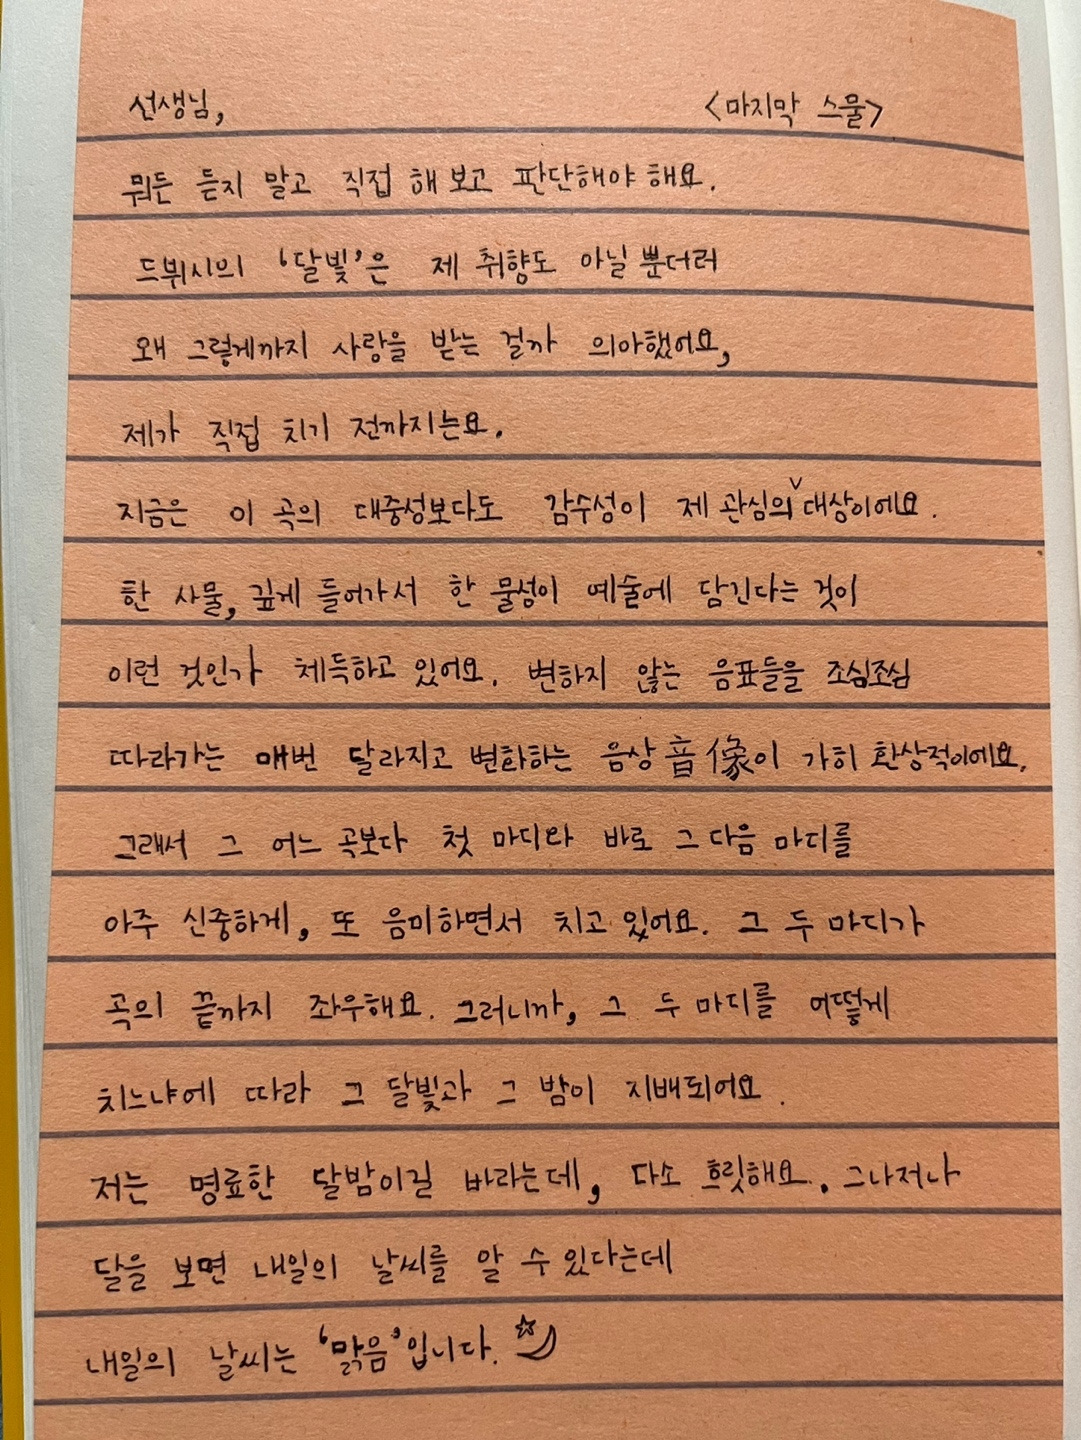 선생님, <마지막 스물>
뭐든 듣지 말고 직접 해 보고 판단해야 해요.
드뷔시의 ‘달빛’은 제 취향도 아닐 뿐더러
왜 그렇게까지 사랑을 받는 걸까 의아했어요,
제가 직접 치기 전까지는요.
지금은 이 곡의 대중성보다도 감수성이 제 관심의 대상이에요.
한 사물, 깊게 들어가서 한 물성이 예술에 담긴다는 것이
이런 것인가 체득하고 있어요. 변하지 않는 음표들을 조심조심
따라가는 매번 달라지고 변화하는 음상音像이 가히 환상적이에요.
그래서 그 어느 곡보다 첫 마디와 바로 그 다음 마디를
아주 신중하게, 또 음미하면서 치고 있어요. 그 두 마디가
곡의 끝까지 좌우해요. 그러니까, 그 두 마디를 어떻게
치느냐에 따라 그 달빛과 그 밤이 지배되어요.
저는 명료한 달밤이길 바라는데, 다소 흐릿해요. 그나저나
달을 보면 내일의 날씨를 알 수 있다는데
내일의 날씨는 ‘맑음’입니다.